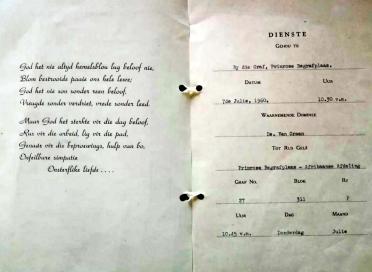 God het nie altyd hemelsblou lug beloof nie,
Blom bestrooide paaie ons hele lewe;
God het nie son sonder reen beloof,
Vreugde sonder verdriet, vrede sonder leed.
Maar God het sterkte vir die dag beloof,
Rus vir die arbeid, lig vir die pad,
Genade vir die beproewings, hulp van bo,
Onfeilbare simpatie
Onsterflike liefde ....
DIENSTE
GEHOU TE
By die Graf, Primrose Begrafplaas.
DATUM UUR
7de Julie, 1960. 10.30 v.m.
WAARNEMENDE DOMINEE
Ds. Van Graan
TOT RUS GELÊ
Primrose Begrafplaas - Afrikaanse Afdeling
GRAF NO. BLOK RY
27 311 F
UUR DAG MAAND
10.45 v.m. Donderdag Julie